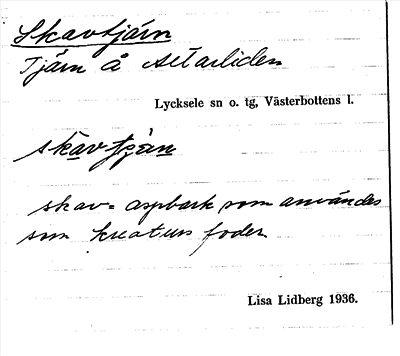 Skavtjärn
Tjärn å Setarliden
Lycksele sn o. tg, Västerbottens l.
skavtjärn
skav = aspbark som användes
som kreaturs foder
Lisa Lidberg 1936.